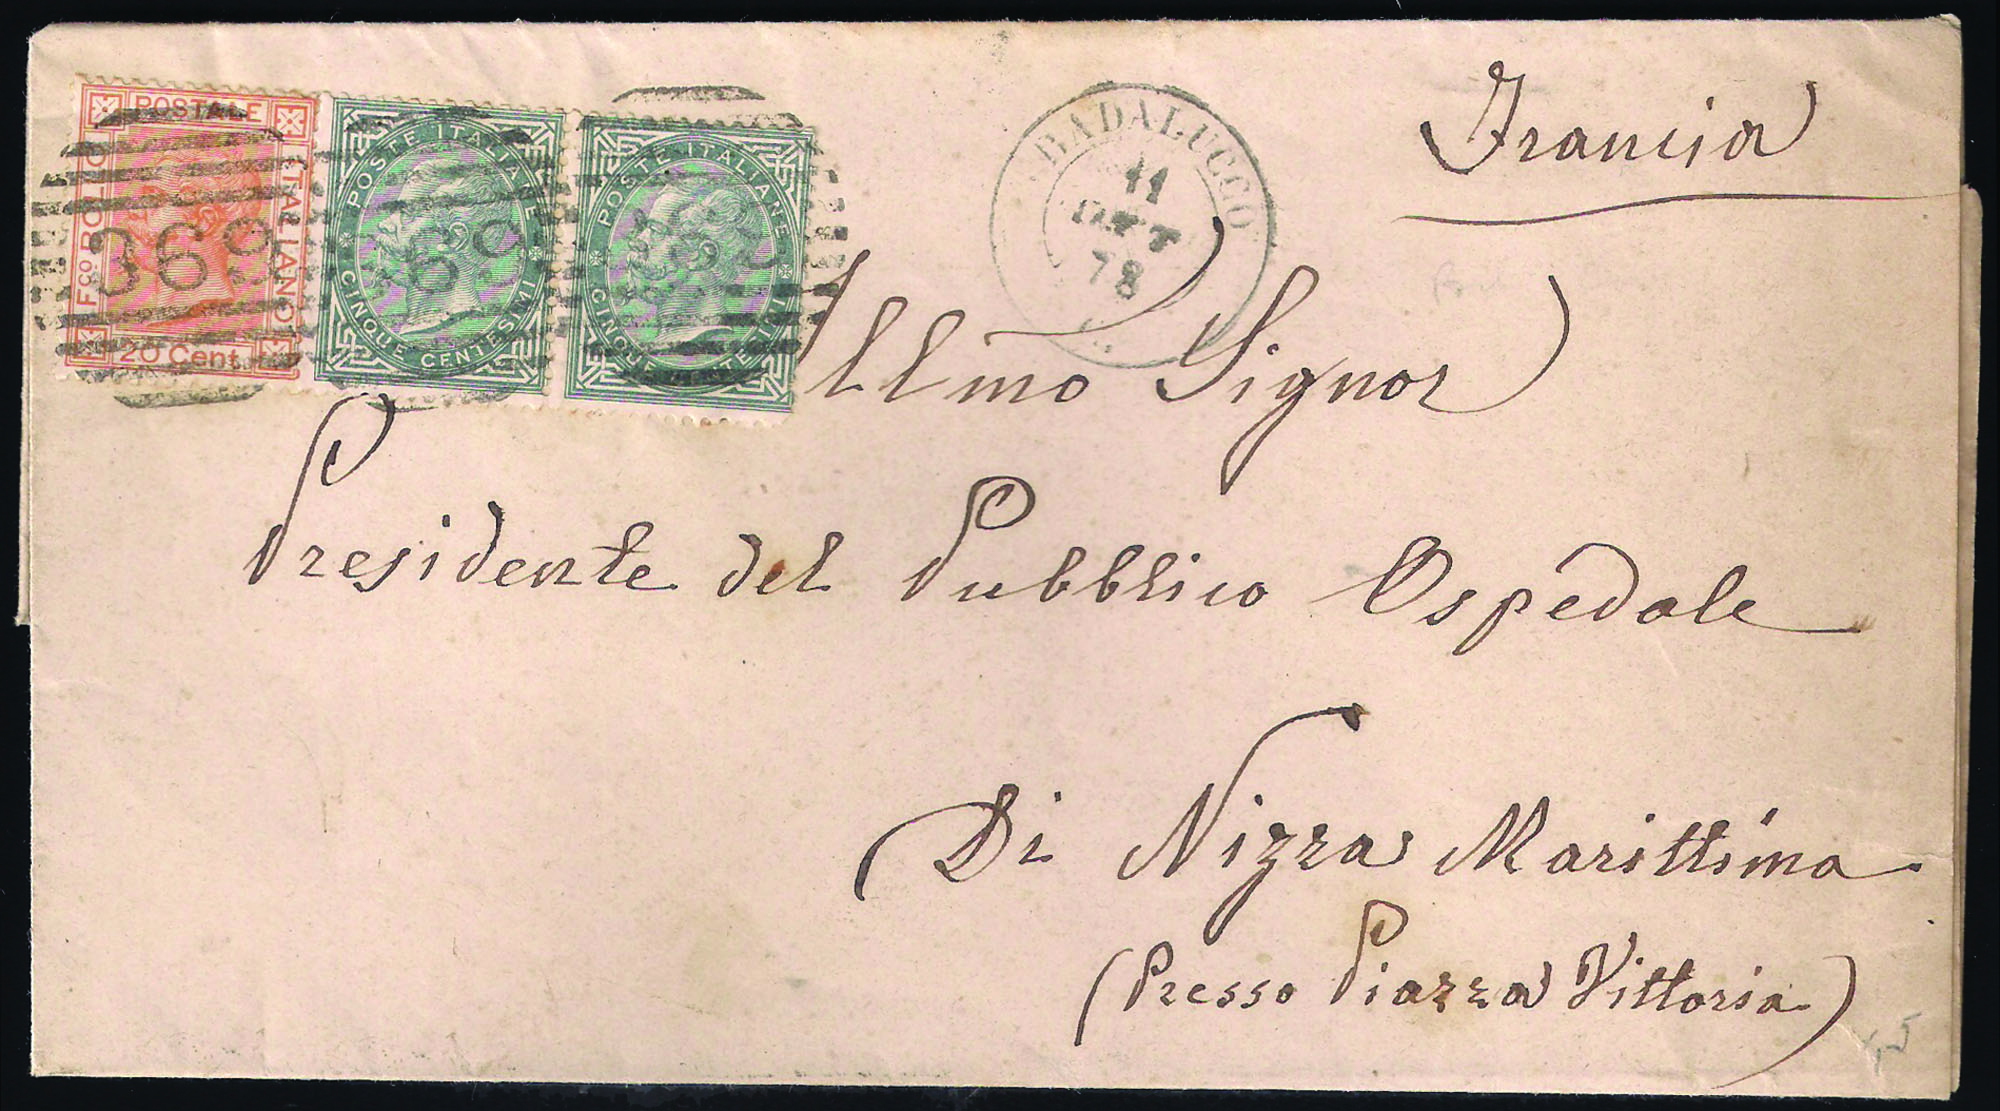 Francia
POSTALE
Fco BOLLO
ITALIANO
20 Cent
369
POSTE ITALIANE
CINQUE CENTESIMI
69
POSTE ITALIANE
CINQUE
BADALUCCO
11
78
Illmo Signor
Presidente del Pubblico Ospedale
Di Nizza Marittima
(Presso Piazza Vittoria)